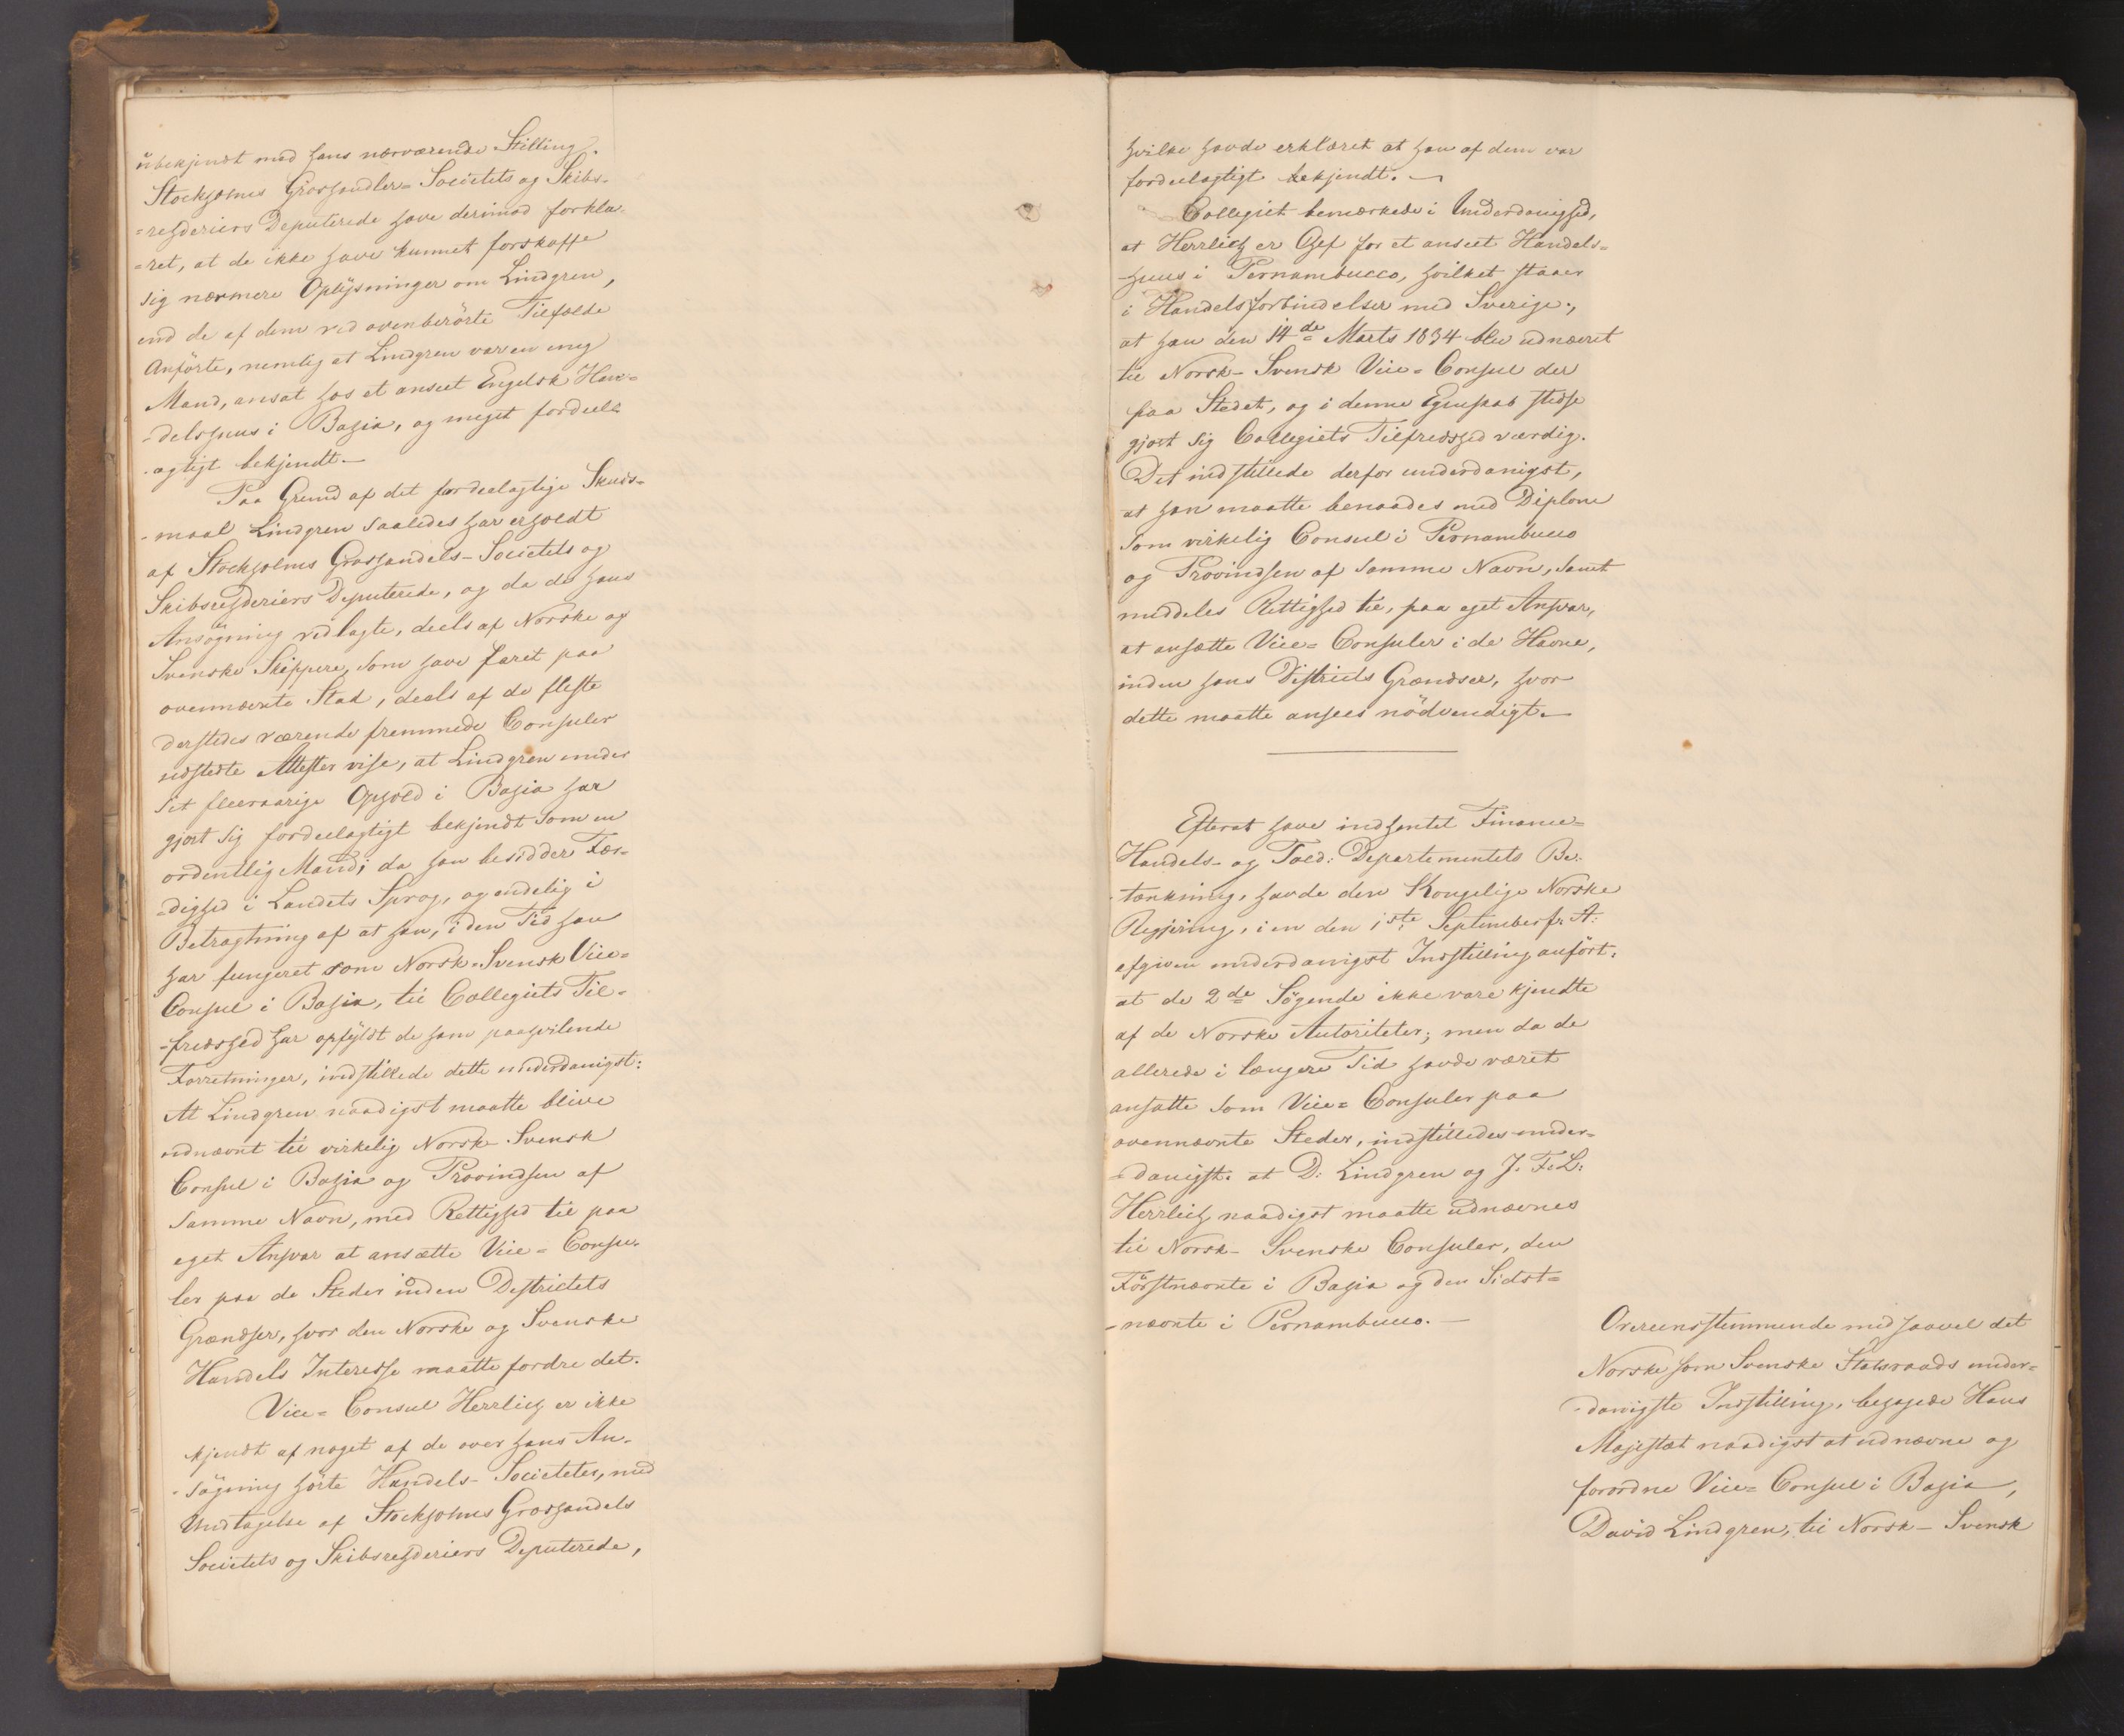 ubekjendt med hans nærværende Stilling.
Stockholms Groshandler= Societets og Skibs-
=rehderiers Deputerede have derimod forkla-
=ret, at de ikke have kunnet forskaffe
sig nærmere Oplysninger om Lindgren,
end de af dem ved ovenberörte Tilfælde
Anförte, nemlig at Lindgren var en ung
Mand, ansat hos et anseet Engelsk Han=
=delshuus i Bahia, og meget fordeel=
=agtigt bekjendt.-
Paa Grund af det fordeelagtige Skuds=
-maal Lindgren saaledes har erholdt
af Stockholms Groshandels-Societets og
Skibsrehderiers Deputerede, og da de hans
Ansögning vedlagte, deels af Norske og
Svenske Skippere, som have faret paa
ovennævnte Stad, deels af de fleste
dersteds værende fremmede Consuler
udstedte Attester vise, at Lindgren under
sit fleeraarige Ophold i Bahia har
gjort sig fordeelagtigt bekjendt som en
ordentlig Mand; da han besidder Fær-
=dighed i Landets Sprog, og endelig i
Betragtning af at han, i den Tid han
har fungeret som Norsk-Svensk Vice=
Consul i Bahia, til Collegiets Til-
-fredshed har opfyldt de ham paahvilende
Forretninger, indstillede dette underdanigst:
At Lindgren naadigst maatte blive
udnævnt til virkelig Norsk-Svensk
Consul i Bahia og Provindsen af
samme Navn, med Rettighed til paa
eget Ansvar at ansætte Vice= Consu-
ler paa de Steder inden Destrictets
Grændser, hvor den Norske og Svenske
Handels Interesse maatte fordre det.
Vice= Consul Herrlich er ikke
kjendt af noget af de over hans An-
-sögning hörte Handels-Societeter, med
Undtagelse af Stockholms Groshandels
Societets og Skibsrehderiers Deputerede,
hvilke havde erklæret at han af dem var
fordeelagtigt bekjendt.-
Collegiet bemærkede i Underdanighed,
at Herrlich er Chef for et anseet Handels=
-huus i Pernambucco, hvilket staaer
i Handelsforbindelser med Sverige;
at han den 14de Marts 1834 blev udnævnt
til Norsk-Svensk Vice= Consul der
paa Stedet, og i denne Egenskab stedse
gjort sig Collegiets Tilfredshed værdig.
Det indstillede derfor underdanigst,
at han maatte benaades med Diplom
som virkelig Consul i Pernambuco
og Provindsen af samme Navn, samt
meddeles Rettighed til, paa eget Ansvar,
at ansætte Vice= Consuler i de Havne,
inden hans Districts Grændser, hvor
dette maatte ansees nödvendigt.-
Efterat have indhentet Finance=
Handels- og Told: Departementets Be-
-tænkning, havde den Kongelige Norske
Regjering, i en den 1ste September f: A:
afgiven underdanigst Indstilling anfört,
at de 2de Sögende ikke vare kjendte
af de Norske Autoriteter; men da de
allerede i længere Tid havde været
ansatte som Vice= Consuler paa
ovennævnte Steder, indstilledes under=
=danigst, at D: Lindgren og J. F. L:
Herrlich naadigst maatte udnævnes
til Norsk-Svenske Consuler, den
Förstnævnte i Bahia og den Sidst=
-nævnte i Pernambuco.-
Overeensstemmende med saavel det
Norske som Svenske Statsraads under=
-danigste Indstilling, behagede Hans
Majestæt naadigst at udnævne og
forordne Vice= Consul i Bahia,
David Lindgren, til Norsk-Svensk